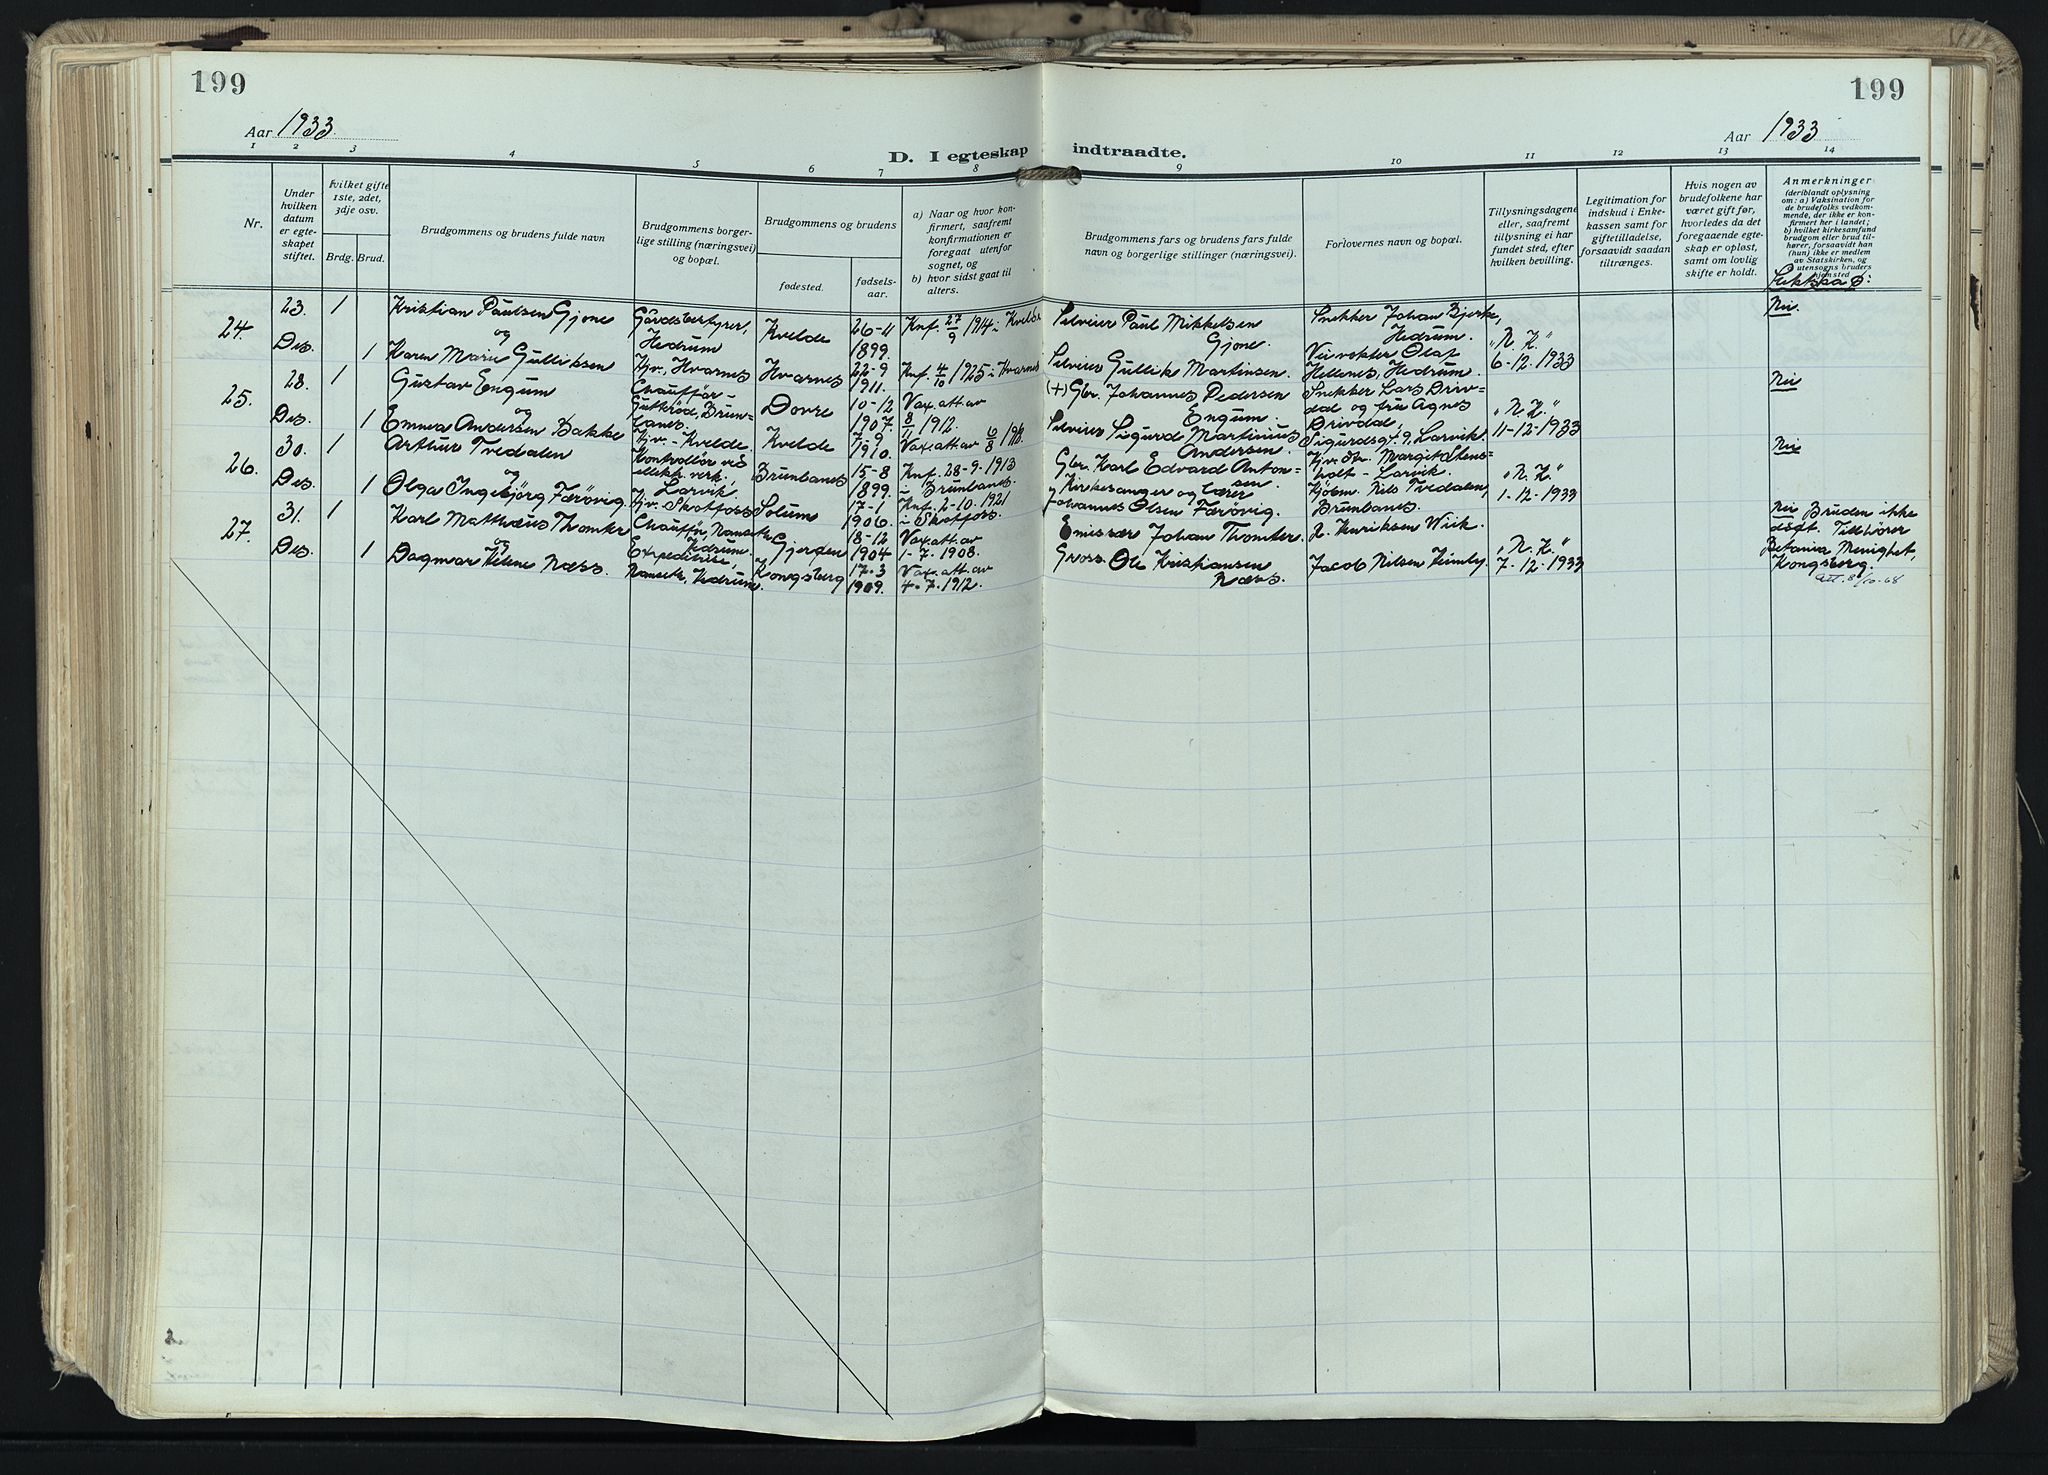 199
199
Aar 1933
Aar 1933
D. I egteskap indtraadte.
1 2 3 4 5 6 7 8 9 10 11 12 13 14
Nr.
Under hvilken datum er egteskapet stiftet.
Hvilket gifte 1ste, 2det, 3dje osv.
Brdg. Brud.
Brudgommens og brudens fulde navn
Brudgommens borgerlige stilling (næringsvei) og bopæl.
Brudgommens og brudens
fødested.
fødselsaar.
a) Naar og hvor konfirmert, saafremt konfirmationen er foregaat utenfor sognet, og
b) hvor sidst gaat til alters.
Brudgommens fars og brudens fars fulde navn og borgerlige stillinger (næringsvei).
Forlovernes navn og bopæl.
Tillysningsdagene eller, saafremt tillysning ei har fundet sted, efter hvilken bevilling.
Legitimation for indskud i Enkekassen samt for giftetilladelse, forsaavidt saadan tiltrænges.
Hvis nogen av brudefolkene har været gift før, hvorledes da det foregaaende egteskap er opløst, samt om lovlig skifte er holdt.
Anmerkninger
(deriblandt oplysning om: a) Vaksination for de brudefolks vedkommende, der ikke er konfirmert her i landet; b) hvilket kirkesamfund brudgom eller brud tilhører, forsaavidt han (hun) ikke er medlem av Statskirken, og utensogns bruders hjemsted
24.
23. 1 Kristian Paulsen Gjone Gårdsbestyrer, Hedrum Kvelde 26-11 1899. Knf. 27/9 1914 i Kvelde Selveier Paul Mikkelsen Gjone. Snekker Johan Bjerke, Hedrum. "N. K." 6-12-1933 Nei.
og
Des. 1 Karen Marie Gulliksen Hjv., Hvarnes Hvarnes 22-9 1911. Knf. 4/10 1925 i Hvarnes Selveier Gullike Martinsen. Veivokter Olaf Hellenes, Hedrum.
25.
28. 1 Gustav Engum Chauffør - Dovre 10-12 1907. Vax. att. av 8/11 1912. (+) Gbr. Johannes Pedersen Engum. Snekker Lars Brivdal og fru Agnes Brivdal, "N. K." 11-12-1933 Nei
og
Des. 1 Emma Andersen Bakke Hjv. - Kvelde. Kvelde 7-9 1910. Vax. att. av 6/8 Selveier Sigurd Martinius Andersen. Sigurdsgt. 9. Larvik.
26.
30. 1 Arthur Tvedalen Kontrollør ved elekk. verk, Larvik. Brunlanes 15-8 1899. Knf. 28-9-1913 i Brunlanes. Gbr. Karl Edvard Antonsen. Hjv. Margit Stensholt - Larvik. "N. K." 1-12-1933 Nei
og
Des. 1 Olga Ingebjørg Færøvig Hjv. Skotfoss Solum 17-1 1906. Knf. 2-10-1921 i Skotfoss. Kirkesanger og lærer Johannes Olsen Færøvig. Kjøbm. Nils Tvedalen, Brunlanes.
27.
31. 1 Karl Matthæus Thomter Chauffør, Hedrum. Gjerpen 18-12 1904 Vax. att. av 1-7-1908. Emissær Johan Thomter. H. Henriksen Wiik. "N. K." 7-12-1933 Nei Bruden ikke døpt. Tilhører Betania Menighet, Kongsberg.
og
Des. 1 Dagmar Helene Næss. Expeditrise, Nanset, Hedrum. Kongsberg 17-3 1909. Vax. att. av 4-7-1912. Gross. Ole Kristiansen Næss. Jacob Nilsen
Att. 8/10-68